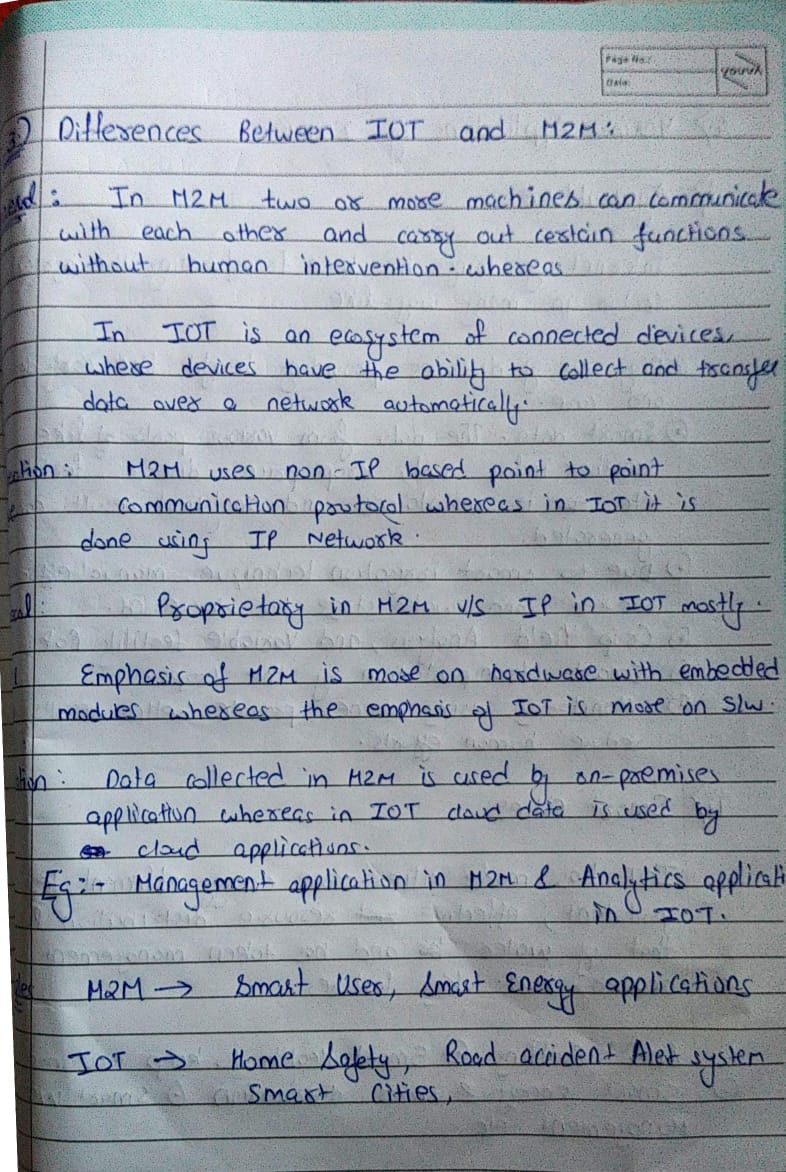 Page No.:
Date:
YOUVA
3) Differences Between IOT and M2M:
: In M2M two or more machines can communicate
with each other and carry out certain functions
without human intervention. whereas
In IOT is an ecosystem of connected devices,
where devices have the ability to collect and transfer
data over a network automatically.
ction: M2M uses non-IP based point to point
communication protocol whereas in IOT it is
done using IP Network.
col: Proprietary in M2M v/s IP in IOT mostly.
Emphasis of M2M is more on hardware with embedded
modules whereas the emphasis of IOT is more on S/w.
tion: Data collected in M2M is used by on-premises
application whereas in IOT cloud data is used by
cloud applications.
Eg:- Management application in M2M & Analytics applicati
in IOT.
M2M → Smart User, Smart Energy applications
IOT → Home Safety, Road accident Alet system
Smart Cities,